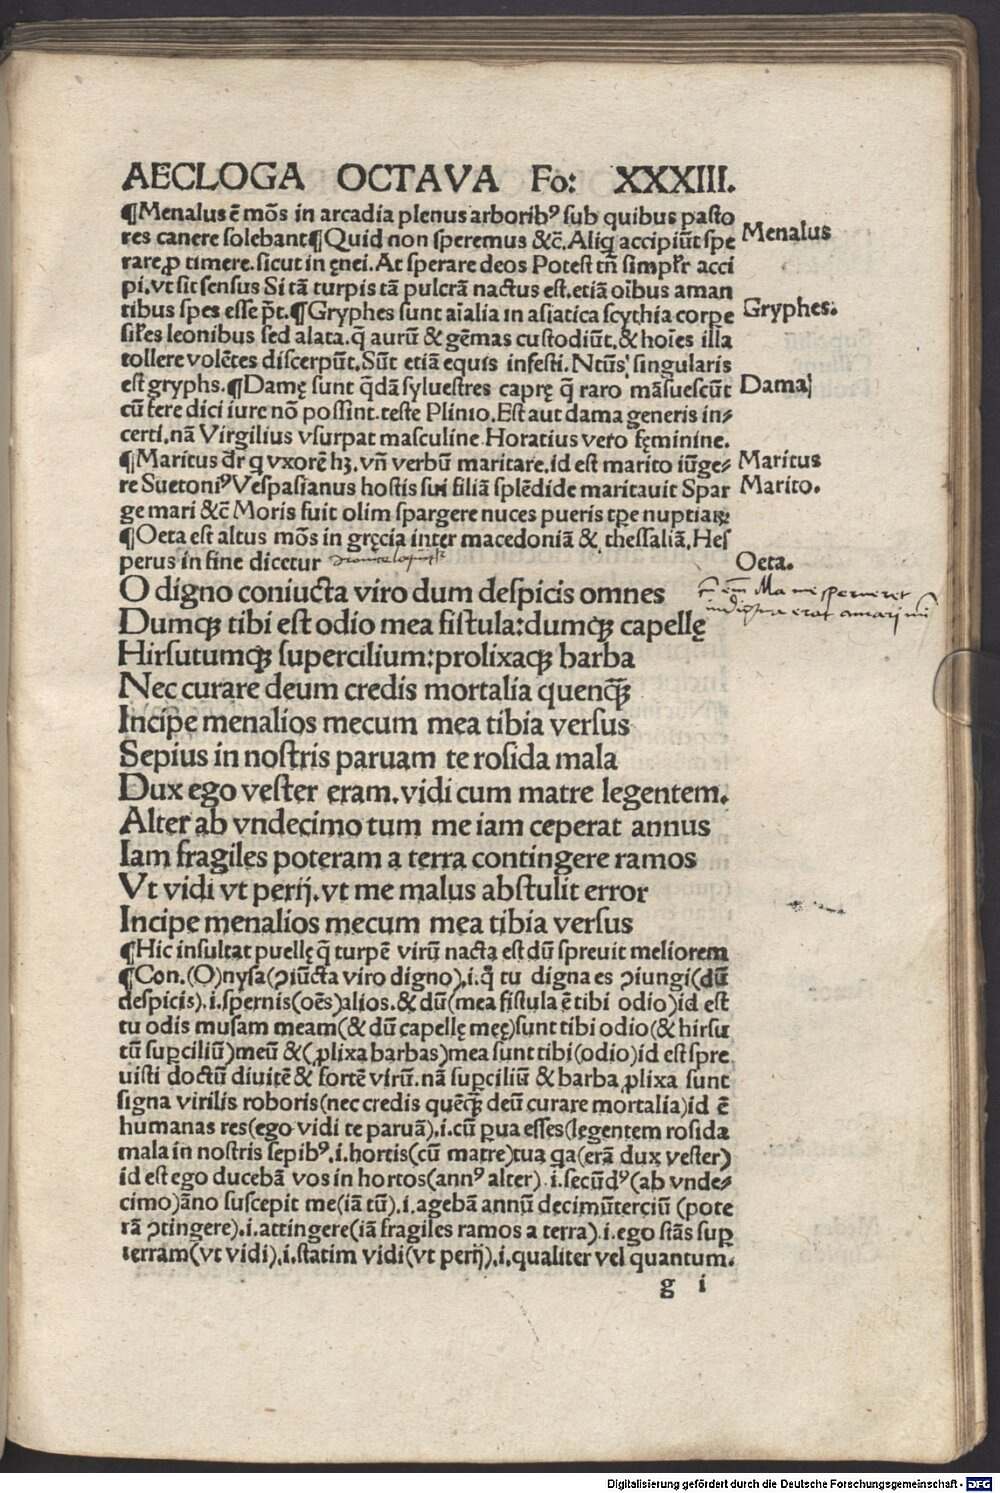 AECLOGA OCTAVA Fo: XXXIII.
¶Menalus ē mōs in arcadia plenus arboribꝰ sub quibus pasto
res canere solebant¶Quid non speremus &c̄. Aliq̄ accipiūt spe
rare ꝓ timere. sicut in ęnei. At sperare deos Potest tn̄ simplr̄ acci
pi. vt sit sensus Si tā turpis tā pulcrā nactus est. etiā oībus aman
tibus spes esse p̄t.¶Gryphes sunt aīalia in asiatica scythia corpe
sil̄es leonibus sed alata. q̄ aurū & gēmas custodiūt. & hoīes illa
tollere volētes discerpūt. Sūt etiā equis infesti. Ntūs singularis
est gryphs.¶Damę sunt q̄dā syluestres caprę q̄ raro māsuescūt
cū fere dici iure nō possint. teste Plinio. Est aut dama generis in-
certi. nā Virgilius vsurpat masculine Horatius vero fęminine.
¶Maritus dr̄ q vxorē hꝫ. vn̄ verbū maritare. id est marito iūge-
re Suetoniꝰ Vespasianus hostis sui filiā splēdide maritauit Spar
ge mari &c̄ Moris fuit olim spargere nuces pueris tꝑe nuptiaꝝ
¶Oeta est altus mōs in gręcia inter macedoniā & thessaliā. Hes
perus in fine dicetur
Menalus
Gryphes.
Dama
Maritus
Marito.
Oeta.
O digno coniucta viro dum despicis omnes
Dumqꝫ tibi est odio mea fistula: dumqꝫ capellę
Hirsutumqꝫ supercilium: prolixaqꝫ barba
Nec curare deum credis mortalia quenq̄ꝫ
Incipe menalios mecum mea tibia versus
Sepius in nostris paruam te rosida mala
Dux ego vester eram. vidi cum matre legentem.
Alter ab vndecimo tum me iam ceperat annus
Iam fragiles poteram a terra contingere ramos
Vt vidi vt perij. vt me malus abstulit error
Incipe menalios mecum mea tibia versus
¶Hic insultat puellę q̄ turpē virū nacta est dū spreuit meliorem
¶Con.(O) nysa(ↄiūcta viro digno).i. q̄ tu digna es ↄiungi(dū
despicis).i. spernis(oēs)alios. & dū(mea fistula ē tibi odio)id est
tu odis musam meam(& dū capellę meę)sunt tibi odio(& hirsu
tū suꝑciliū)meū &(ꝓlixa barbas)mea sunt tibi(odio)id est spre
uisti doctū diuitē & fortē virū. nā suꝑciliū & barba ꝓlixa sunt
signa virilis roboris(nec credis quēq̄ꝫ deū curare mortalia)id ē
humanas res(ego vidi te paruā).i. cū ꝑua esses(legentem rosida
mala in nostris sepibꝰ.i. hortis(cū matre)tua qa(erā dux vester)
id est ego ducebā vos in hortos(annꝰ alter).i. secūdꝰ(ab vnde-
cimo)āno suscepit me(iā tū).i. agebā annū decimūterciū (pote
rā ↄtingere).i. attingere(iā fragiles ramos a terra).i. ego stās suꝑ
terram(vt vidi).i. statim vidi(vt perij).i. qualiter vel quantum.
g i
Digitalisierung gefördert durch die Deutsche Forschungsgemeinschaft - DFG